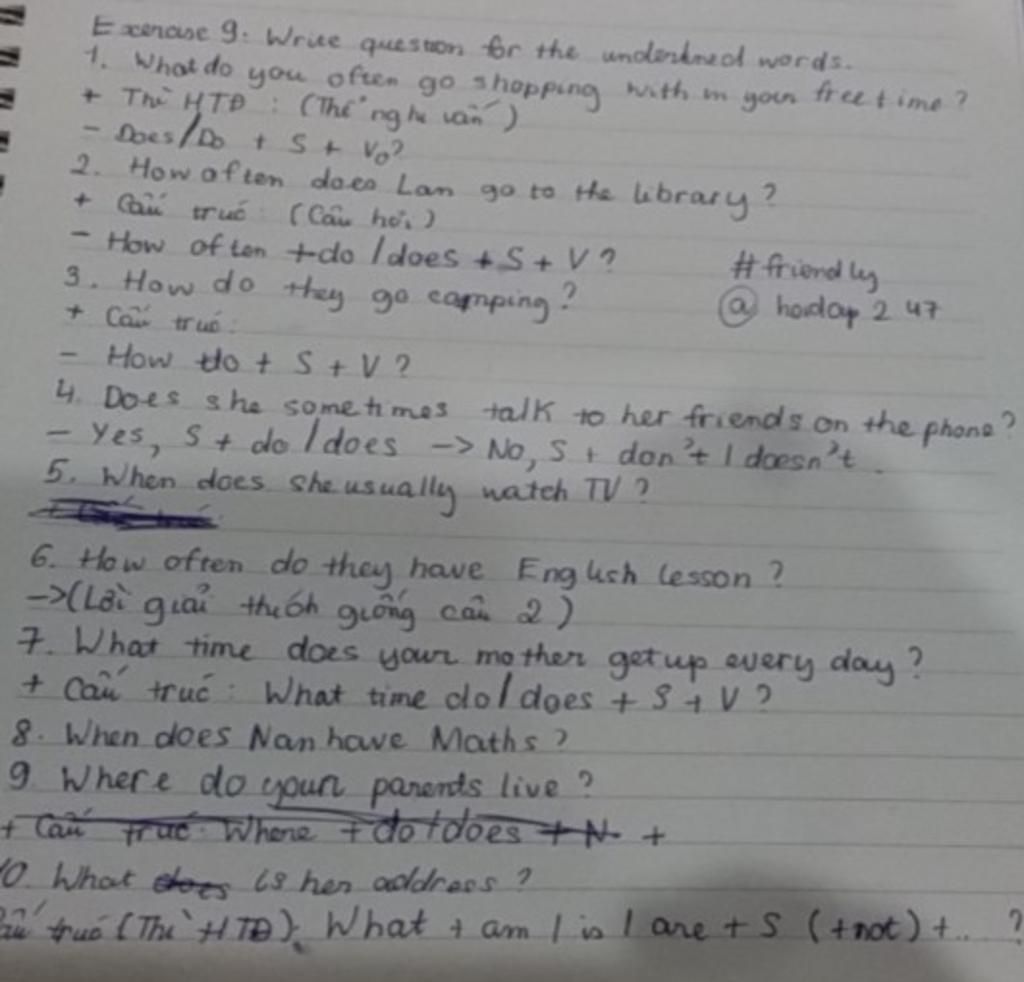 Exercise 9: Write question for the underlined words.
1. What do you often go shopping with in your free time?
+ Thì HTĐ: (Thể nghi vấn)
- Does/Do + S + V₀?
2. How often does Lan go to the library?
+ Cấu trúc: (Câu hỏi)
- How often + do / does + S + V?
#friendly
3. How do they go camping?
@ hoidap 247
+ Cấu trúc:
- How do + S + V?
4. Does she sometimes talk to her friends on the phone?
- Yes, S + do / does -> No, S + don't / doesn't.
5. When does she usually watch TV?
6. How often do they have English lesson?
-> (Lời giải thích giống câu 2)
7. What time does your mother get up every day?
+ Cấu trúc: What time do / does + S + V?
8. When does Nan have Maths?
9. Where do your parents live?
+ Cấu trúc: Where + do / does + N +
10. What does is her address?
Cấu trúc (Thì HTĐ): What + am / is / are + S (+not) + .. ?